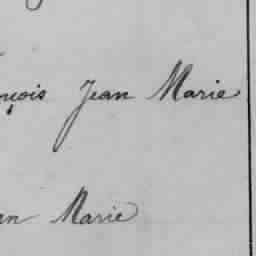 nçois Jean Marie
an Marie